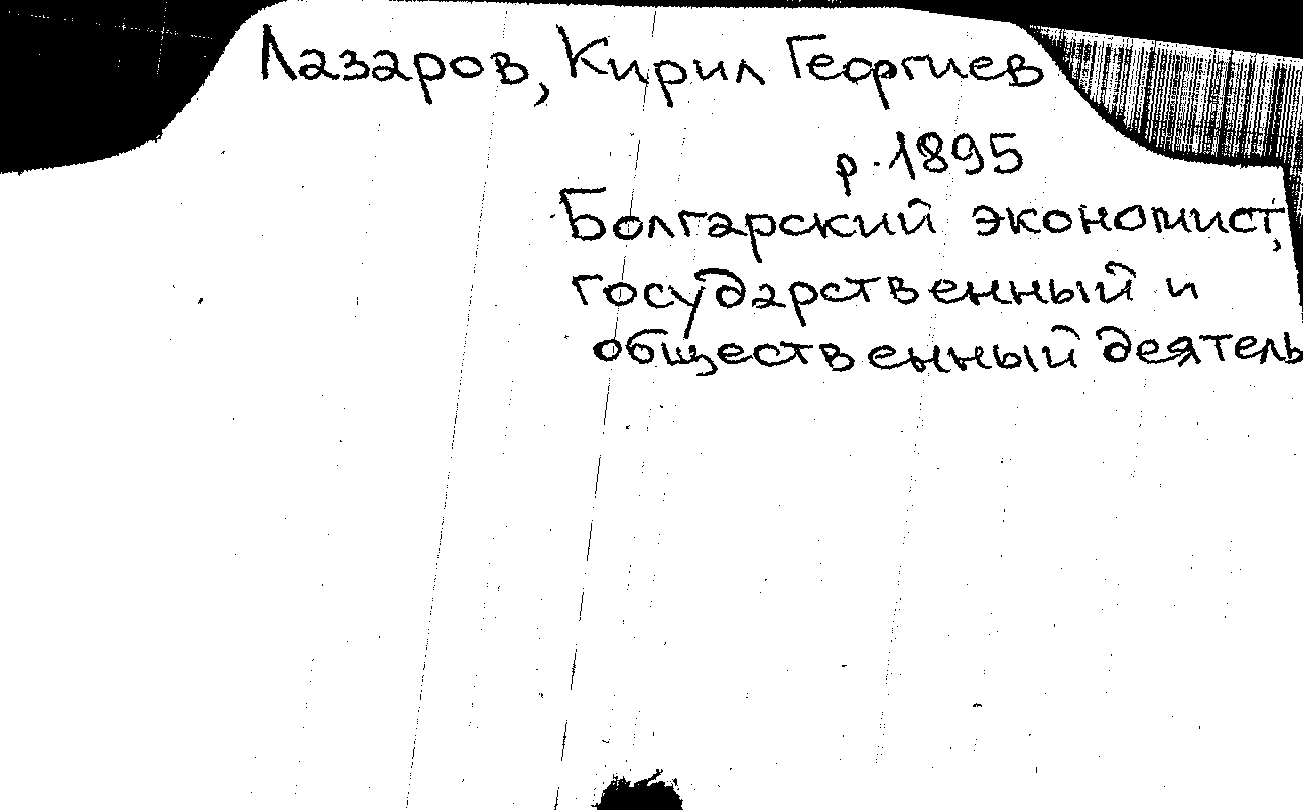 Лазаров, Кирил Георгиев
р. 1895
Болгарский экономист,
государственный и
общественный деятель